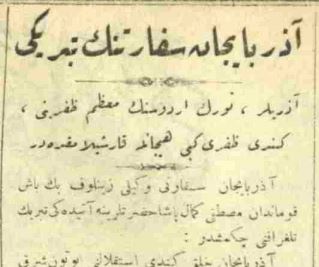 آذربایجان سفارتنك تبریكی
آذریلر ، تورك اردوسنك معظم ظفرینی ،
كندی ظفری كبی هیجانله قارشیلامقده‌در
آذربایجان سفارتی وكیلی زینلوف بك باش
قوماندان مصطفی كمال پاشا حضرتلرینه آتیده‌كی تبریك
تلغرافنی چكمشدر :
آذربایجان خلقی كندی استقلالنی بوتون شرق